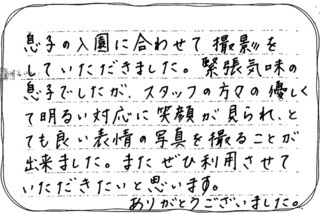 息子の入園に合わせて撮影を
していただきました。緊張気味の
息子でしたが、スタッフの方々の優しく
て明るい対応に笑顔が見られ、と
ても良い表情の写真を撮ることが
出来ました。またぜひ利用させて
いただきたいと思います。
ありがとうございました。